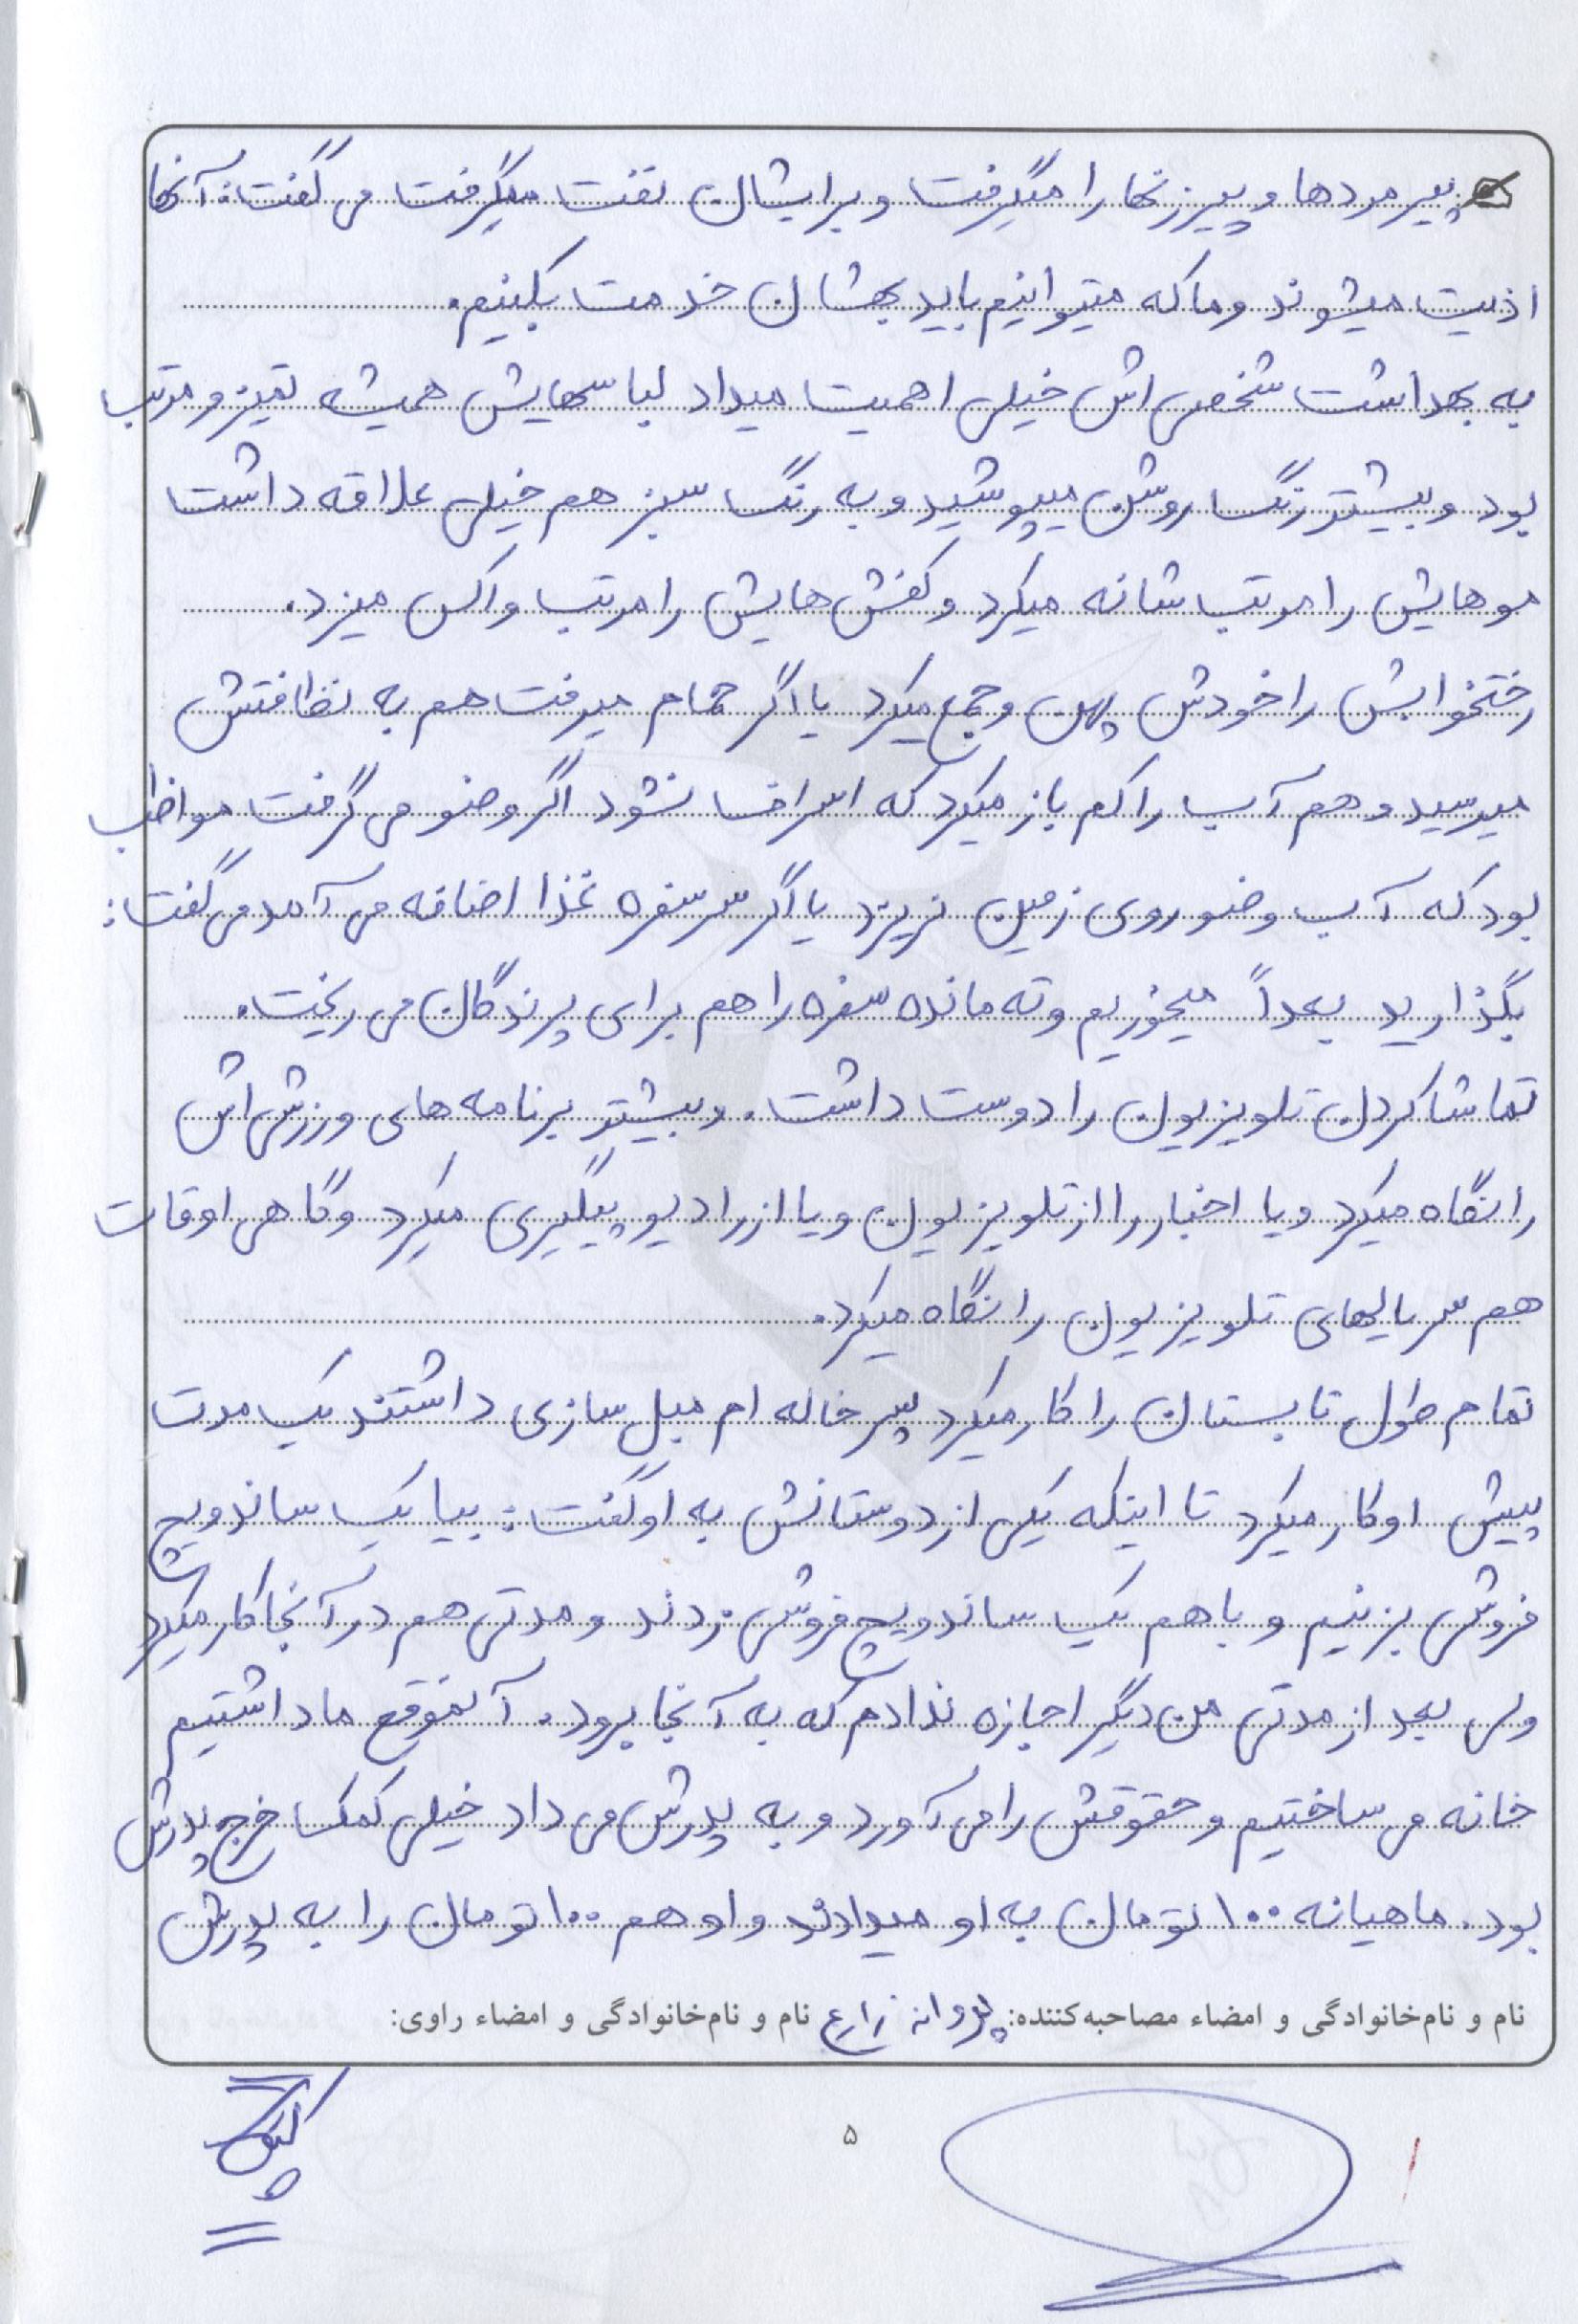 پیرمردها و پیرزنها را میگرفت و برایشان نفت میگرفت می گفت: آنها
اذیت میشوند و ما که میتوانیم باید بهشان خدمت بکنیم.
به بهداشت شخصی اش خیلی اهمیت میداد لباسهایش همیشه تمیز و مرتب
بود و بیشتر رنگ روشن میپوشید و به رنگ سبز هم خیلی علاقه داشت
موهایش را مرتب شانه میکرد و کفش هایش را مرتب واکس میزد.
رختخوابش را خودش پهن و جمع میکرد یا اگر حمام میرفت هم به نظافتش
میرسید و هم آب را کم باز میکرد که اسراف نشود اگر وضو می گرفت مواظب
بود که آب وضو روی زمین نریزد یا اگر سر سفره غذا اضافه می آمد می گفت:
بگذارید بعداً میخوریم و ته مانده سفره را هم برای پرندگان می ریخت.
تماشا کردن تلویزیون را دوست داشت. و بیشتر برنامه های ورزشی اش
را نگاه میکرد و یا اخبار را از تلویزیون و یا از رادیو پیگیری میکرد و گاهی اوقات
هم سریالهای تلویزیون را نگاه میکرد.
تمام طول تابستان را کار میکرد پسر خاله ام مبل سازی داشتند یک مدت
پیش او کار میکرد تا اینکه یکی از دوستانش به او گفت: بیا یک ساندویچ
فروشی بزنیم و با هم یک ساندویچ فروشی زدند و مدتی هم در آنجا کار میکرد
ولی بعد از مدتی من دیگر اجازه ندادم که به آنجا برود. آنموقع ما داشتیم
خانه می ساختیم و حقوقش را می آورد و به پدرش می داد خیلی کمک خرج پدرش
بود. ماهیانه ۱۰۰ تومان به او میدادند و او هم ۱۰۰ تومان را به پدرش
نام و نام‌خانوادگی و امضاء مصاحبه‌کننده: پروانه زارع نام و نام‌خانوادگی و امضاء راوی:
۵